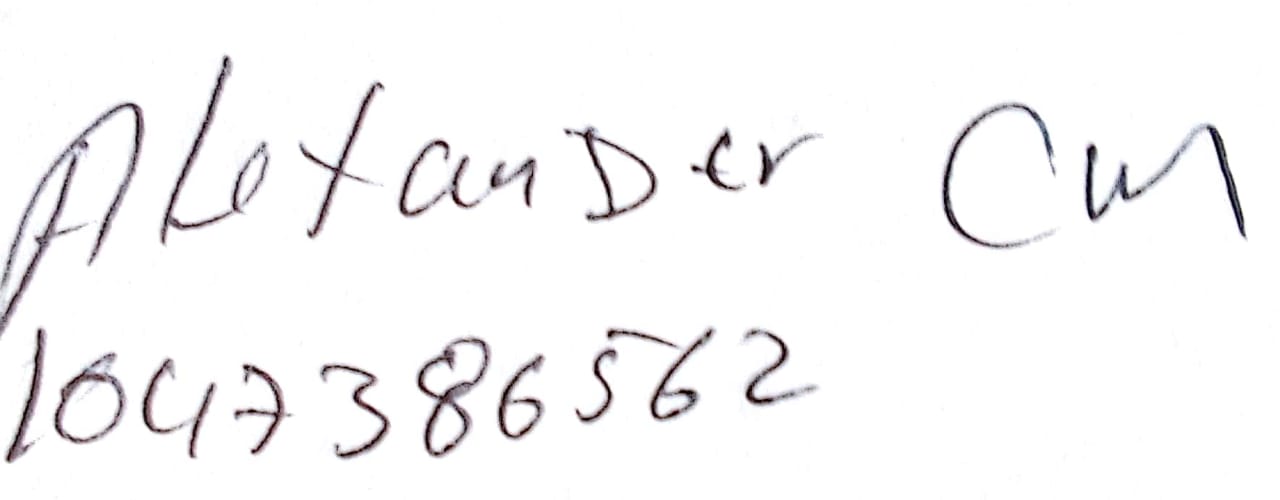 Alexander CM
1047386562